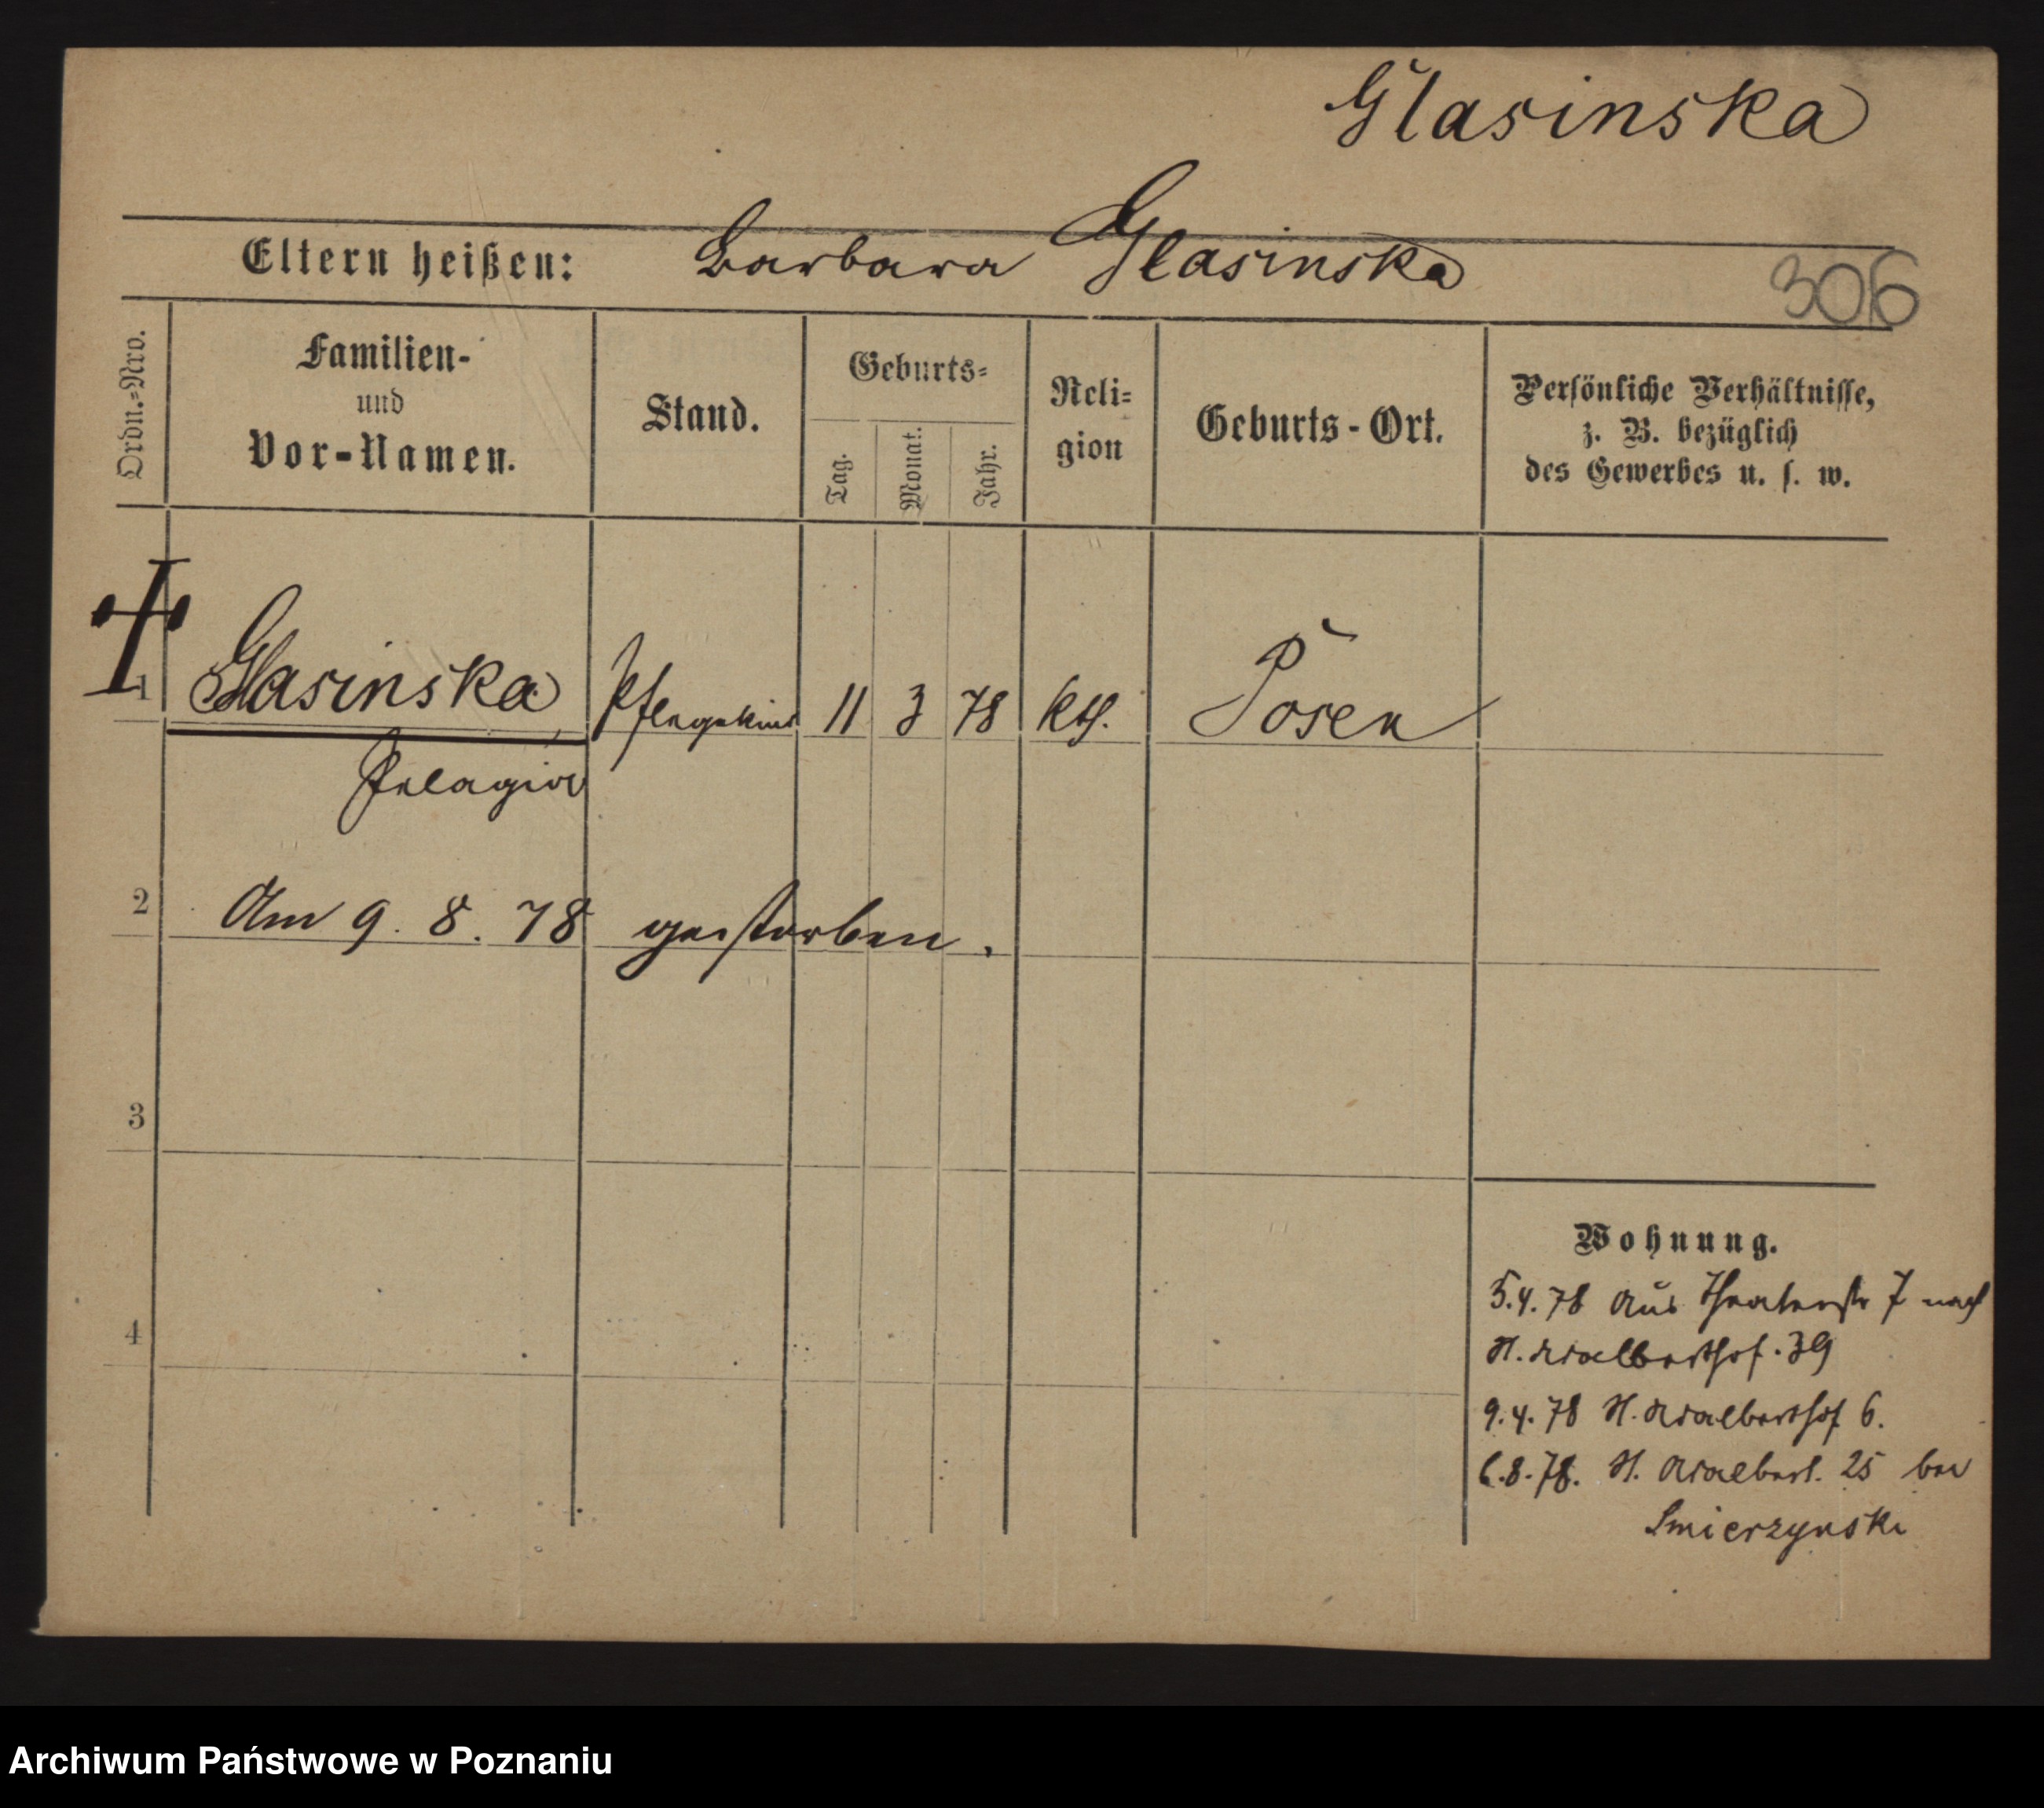 Glasinska
Eltern heißen: Barbara Glasinska
306
Ordn.-Nro.
Familien-
und
Vor-Namen.
Stand.
Geburts-
Tag.
Monat.
Jahr.
Reli-
gion
Geburts-Ort.
Persönliche Verhältnisse,
z. B. bezüglich
des Gewerbes u. s. w.
1 Glasinska Pflegekind 11 3 78 kth. Posen
Pelagia
2 Am 9. 8. 78 gestorben.
3
4
Wohnung.
5.4.78 Aus Theaterstr 7 nach
St. Adalberthof. 39
9.4.78 St. Adalberthof 6.
6.8.78. St. Adalbert. 25 bei
Smierzynski
Archiwum Państwowe w Poznaniu